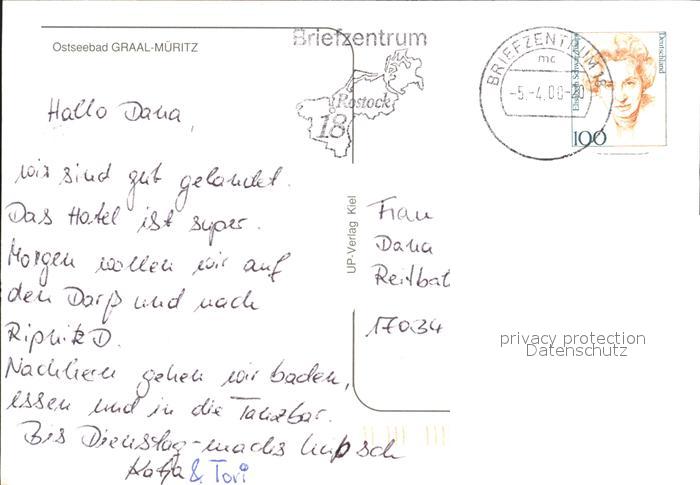 Ostseebad GRAAL-MÜRITZ
Briefzentrum
Rostock
18
BRIEFZENTRUM 18
mc
-5.-4.00-
Deutschland
100
Hallo Dana,
wir sind gut gelandet.
Das Hotel ist super.
Morgen wollen wir auf
den Darß und nach
D.
Nachher gehen wir baden,
essen und in die Tanzbar.
Bis Dienstag - machs hübsch
Katja & Tori
UP-Verlag Kiel
Frau
Dana
Reitbat
17034
privacy protection
Datenschutz